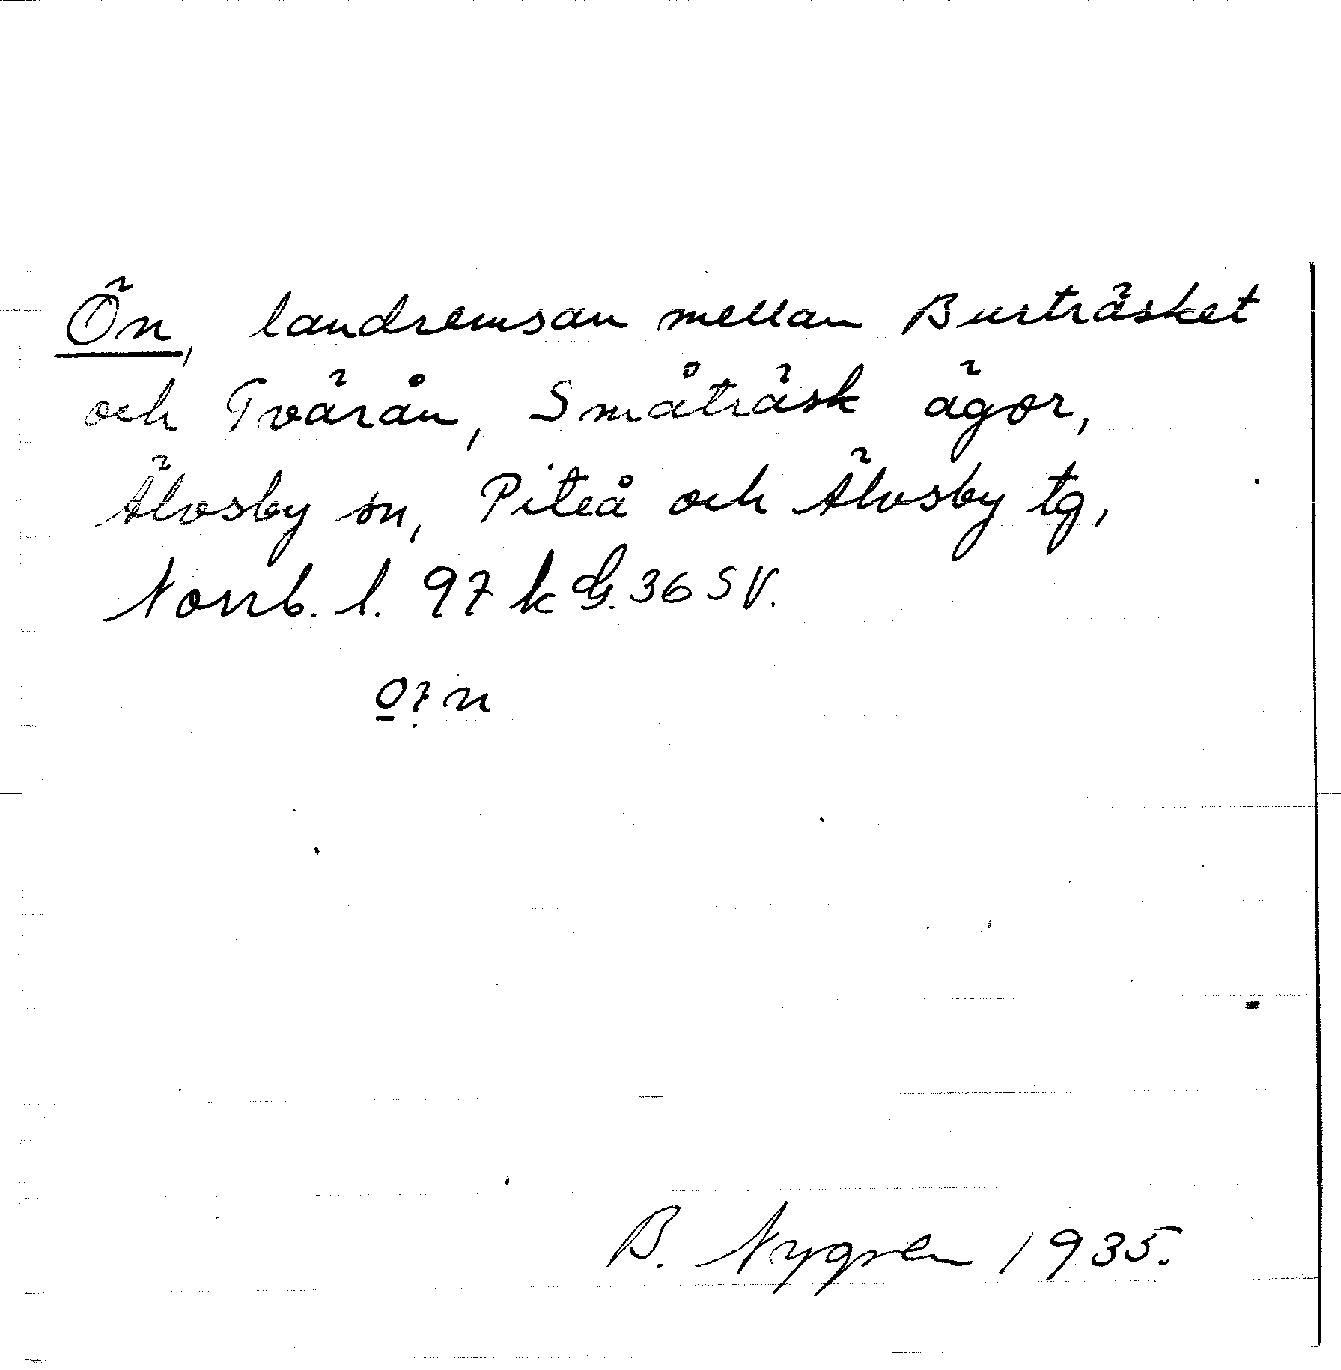 Ön, landremsan mellan Burträsket
och Tvärån, Småträsk ägor,
Älvsby sn, Piteå och Älvsby tg,
Norrb. l. 97 k G. 36 SV.
B. Nygren 1935.